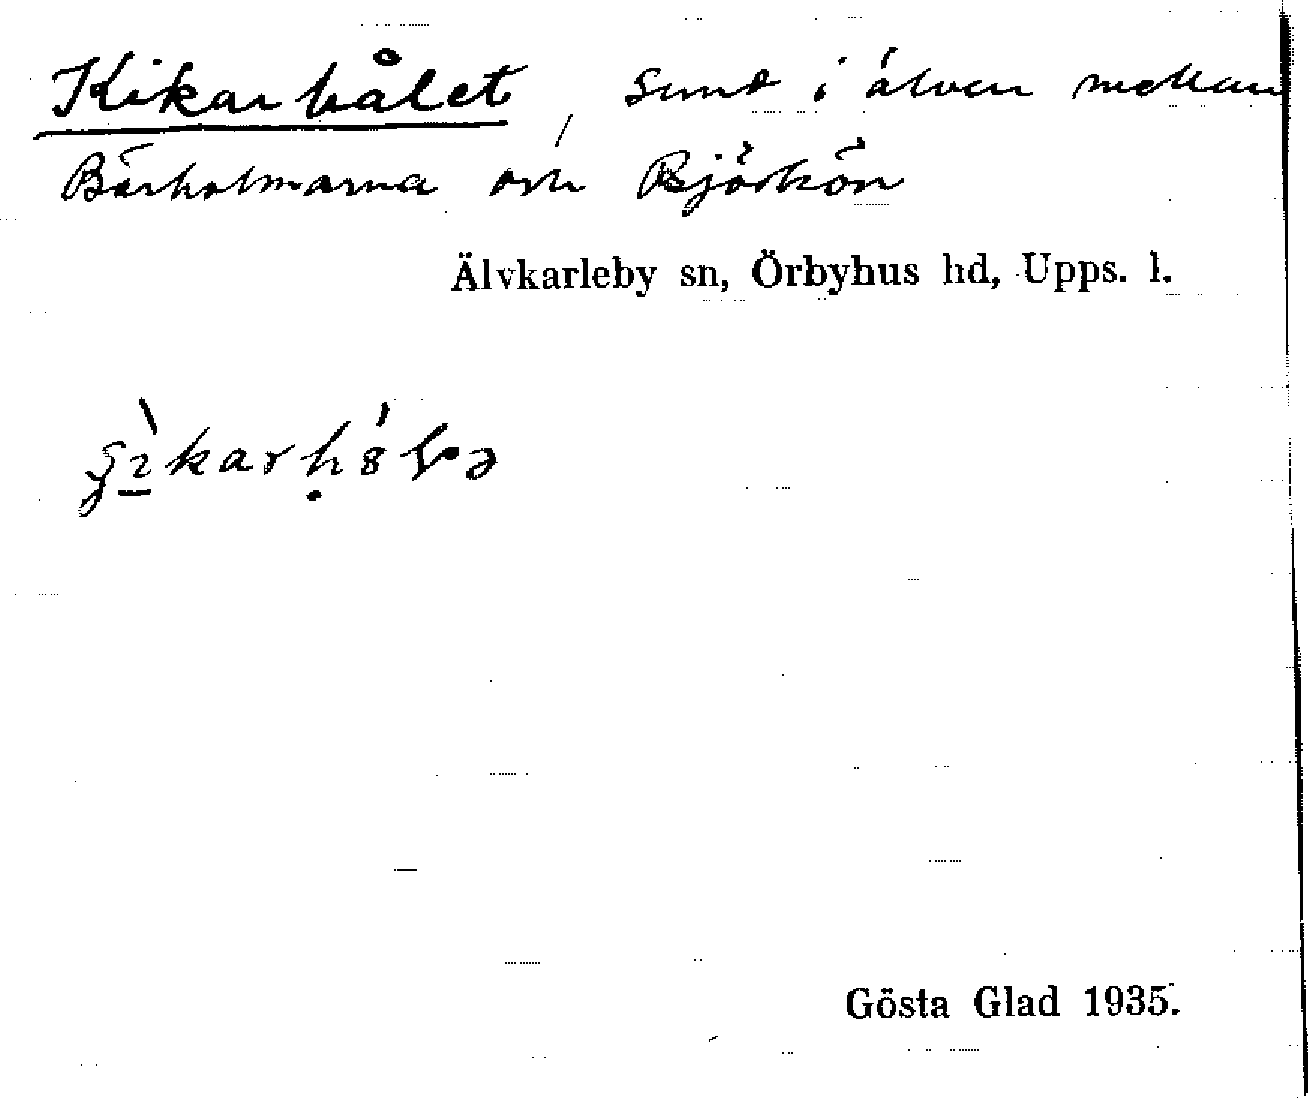 Kikarhålet, sund i älven mellan
Bärholmarna och Björkön
Älvkarleby sn, Örbyhus hd, Upps. l.
Gösta Glad 1935.